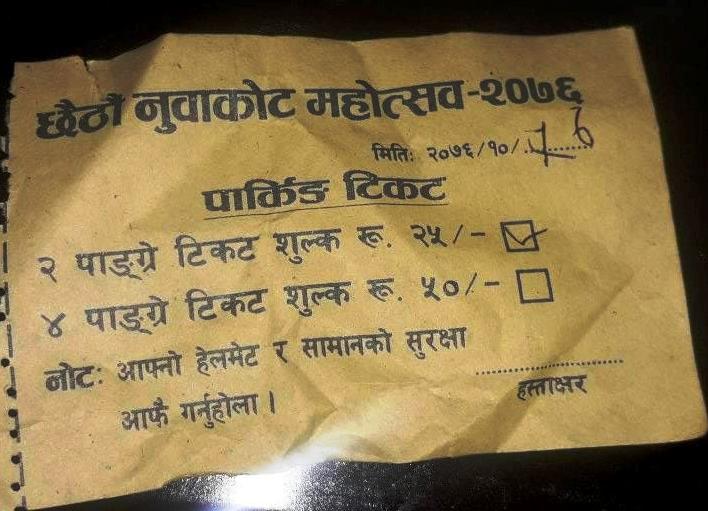 छैठौं नुवाकोट महोत्सव-२०७६
मितिः २०७६/१०/..........
पार्किङ टिकट
२ पाङ्ग्रे टिकट शुल्क रू. २५/-
४ पाङ्ग्रे टिकट शुल्क रू. ५०/-
नोटः आफ्नो हेलमेट र सामानको सुरक्षा
आफै गर्नुहोला ।
हस्ताक्षर